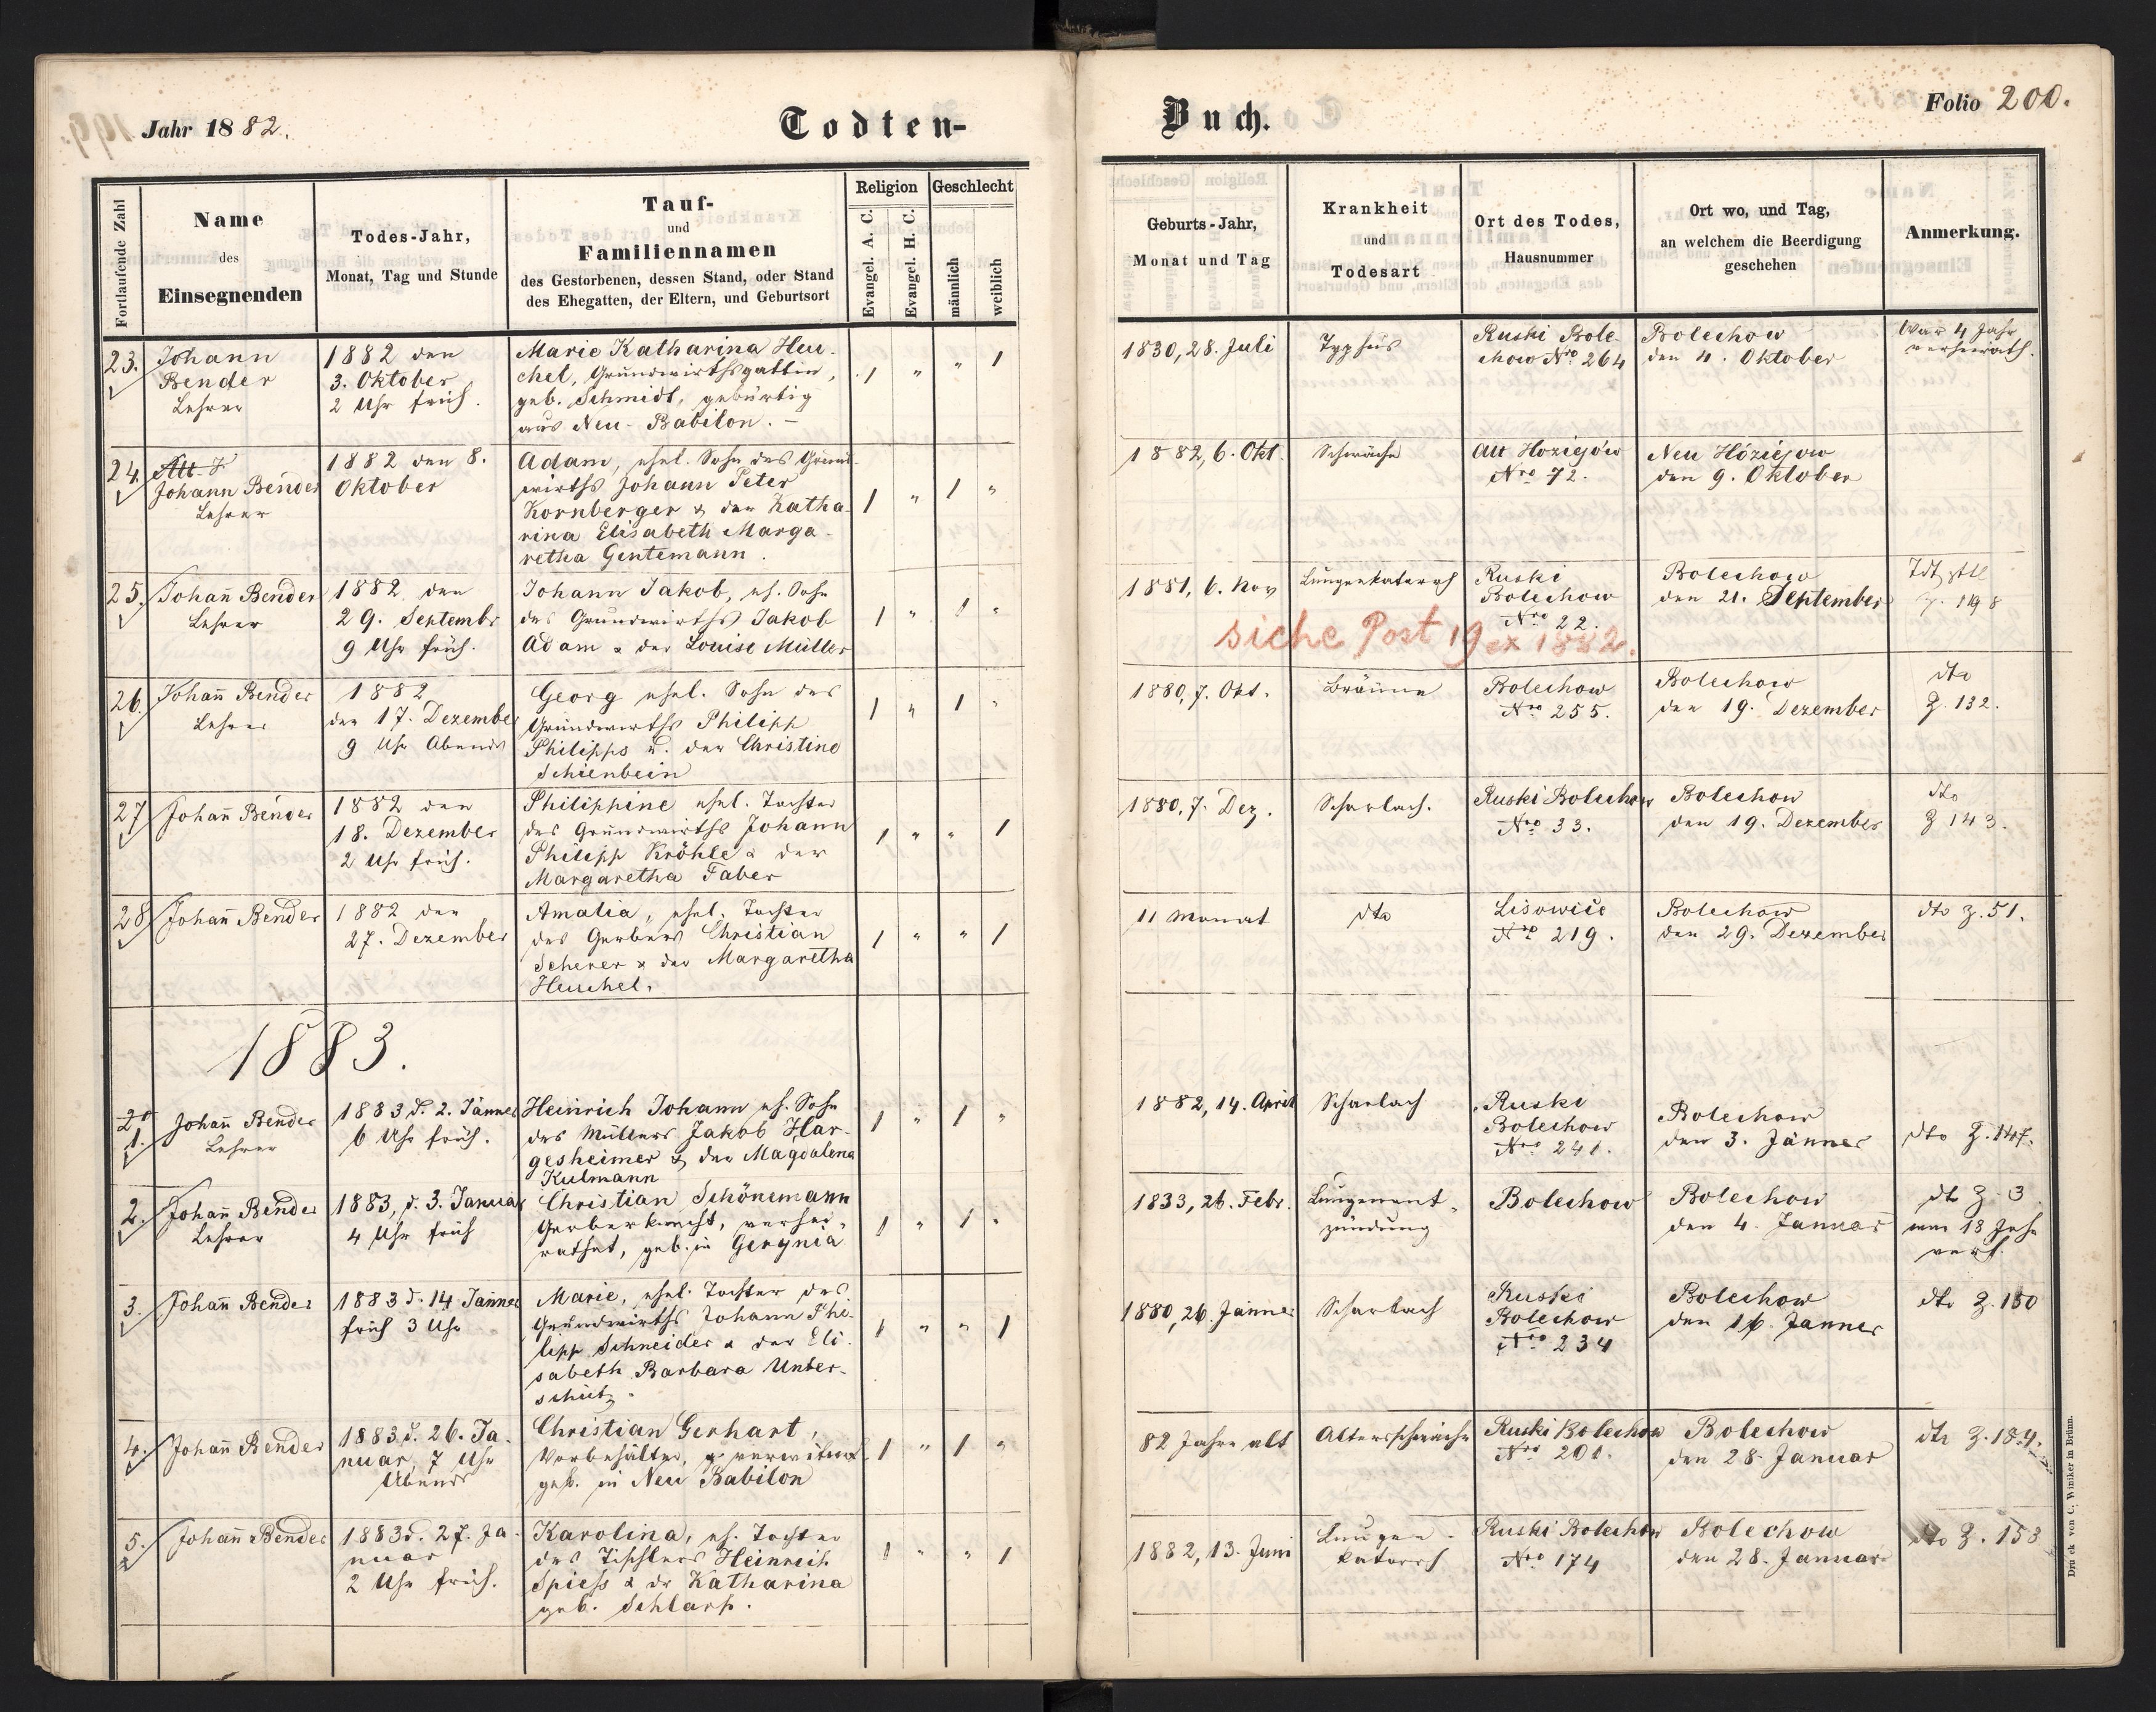 Jahr 1882.
Todten-
Fortlaufende Zahl
Name
des
Einsegnenden
Todes-Jahr,
Monat, Tag und Stunde
Tauf-
und
Familiennamen
des Gestorbenen, dessen Stand, oder Stand
des Ehegatten, der Eltern, und Geburtsort
Religion
Evangel. A. C.
Evangel. H. C.
Geschlecht
männlich
weiblich
23.
Johann
Bender
Lehrer
1882 den
3. Oktober
2 Uhr früh.
Marie Katharina Heu-
chel, Grundwirthsgattin,
geb. Schmidt, gebürtig
aus Neu-Babilon. –
1 " " 1
24.
Johann Bender
Lehrer
1882 den 8.
Oktober
Adam, ehel. Sohn des Grund-
wirths Johann Peter
Kornberger & der Katha-
rina Elisabeth Marga-
retha Gentemann.
1 " 1 "
25.
Johan̄ Bender
Lehrer
1882 den
29. Septembr
9 Uhr früh.
Johann Jakob, eh. Sohn
des Grundwirths Jakob
Adam & der Louise Müller
1 " 1 "
26.
Johan̄ Bender
Lehrer
1882
den 17. Dezember
9 Uhr Abends
Georg ehel. Sohn des
Grundwirths Philipp
Philipps u. der Christine
Schienbein
1 " 1 "
27
Johan̄ Bender
1882 den
18. Dezember
2 Uhr früh.
Philippine ehel. Tochter
des Grundwirths Johann
Philipp Kröhle & der
Margaretha Faber
1 " " 1
28
Johan̄ Bender
1882 den
27. Dezember
Amalia, ehel. Tochter
des Gerbers Christian
Scherer & der Margaretha
Heuchel.
1 " " 1
1883.
1.
Johan̄ Bender
Lehrer
1883 d. 2. Jänner
6 Uhr früh.
Heinrich Johann eh. Sohn
des Müllers Jakob Har-
gesheimer & der Magdalena
Kulmann
1 " 1 "
2.
Johan̄ Bender
Lehrer
1883, d. 3. Januar
4 Uhr früh
Christian Schönemann
Gerberknecht, verhei-
rathet, geb. in Gerynia
1 " 1 "
3.
Johan̄ Bender
1883 d. 14 Jänner
früh 3 Uhr
Marie, ehel. Tochter des
Grundwirths Johann Phi-
lipp Schneider & der Eli-
sabeth Barbara Unter-
schütz.
1 " " 1
4.
Johan̄ Bender
1883 d. 26. Ja-
nuar, 7 Uhr
Abends
Christian Gerhart,
Vorbehälter, verwitwet
geb. in Neu Babilon
1 " 1 "
5.
Johan̄ Bender
1883 d. 27. Ja-
nuar
2 Uhr früh.
Karolina, eh. Tochter
des Tischlers Heinrich
Spiess & dr Katharina
geb. Schlarp.
1 " " 1
Buch.
Folio 200.
Geburts-Jahr,
Monat und Tag
Krankheit
und
Todesart
Ort des Todes,
Hausnummer
Ort wo, und Tag,
an welchem die Beerdigung
geschehen
Anmerkung.
1830, 28. Juli
Typhus
Ruski Bole-
chow Nro 264
Bolechow
den 4. Oktober
War 4 Jahr
verheirath.
1882, 6. Okt.
Schwäche
Alt Hoziejów
Nro 72.
Neu Hóziejow
den 9. Oktober
1881, 6. Nov
Lungenkatarrh
Ruski
Bolechow
Nro 22.
Bolechow
den 21. September
198
siehe Post 19 ex 1882.
1880, 7. Okt.
Bräune
Bolechow
Nro 255.
Bolechow
den 19. Dezember
dto
Z. 132.
1880, 7. Dez.
Scharlach.
Ruski Bolechow
Nro 33.
Bolechow
den 19. Dezember
dto
Z 143.
11 Monat
dto
Lisowice
Nro 219.
Bolechow
den 29. Dezember
dto Z. 51.
1882, 14. April
Scharlach
Ruski
Bolechow
Nro 241.
Bolechow
den 3. Jänner
dto Z. 147.
1833, 26. Febr.
Lungenent-
zündung
Bolechow
Bolechow
den 4. Januar
dto Z. 3
war 18 Jahr
verh.
1880, 26. Jänner
Scharlach
Ruski
Bolechow
Nro 234
Bolechow
den 16. Janner
dto Z. 150
82 Jahre alt
Altersschwäche
Ruski Bolechow
Nro 201.
Bolechow
den 28. Januar
dto Z. 184.
1882, 13. Juni
Lungen-
katarrh
Ruski Bolechow
Nro 174
Bolechow
den 28. Januar
dto Z. 153
Druck von C. Winiker in Brünn.